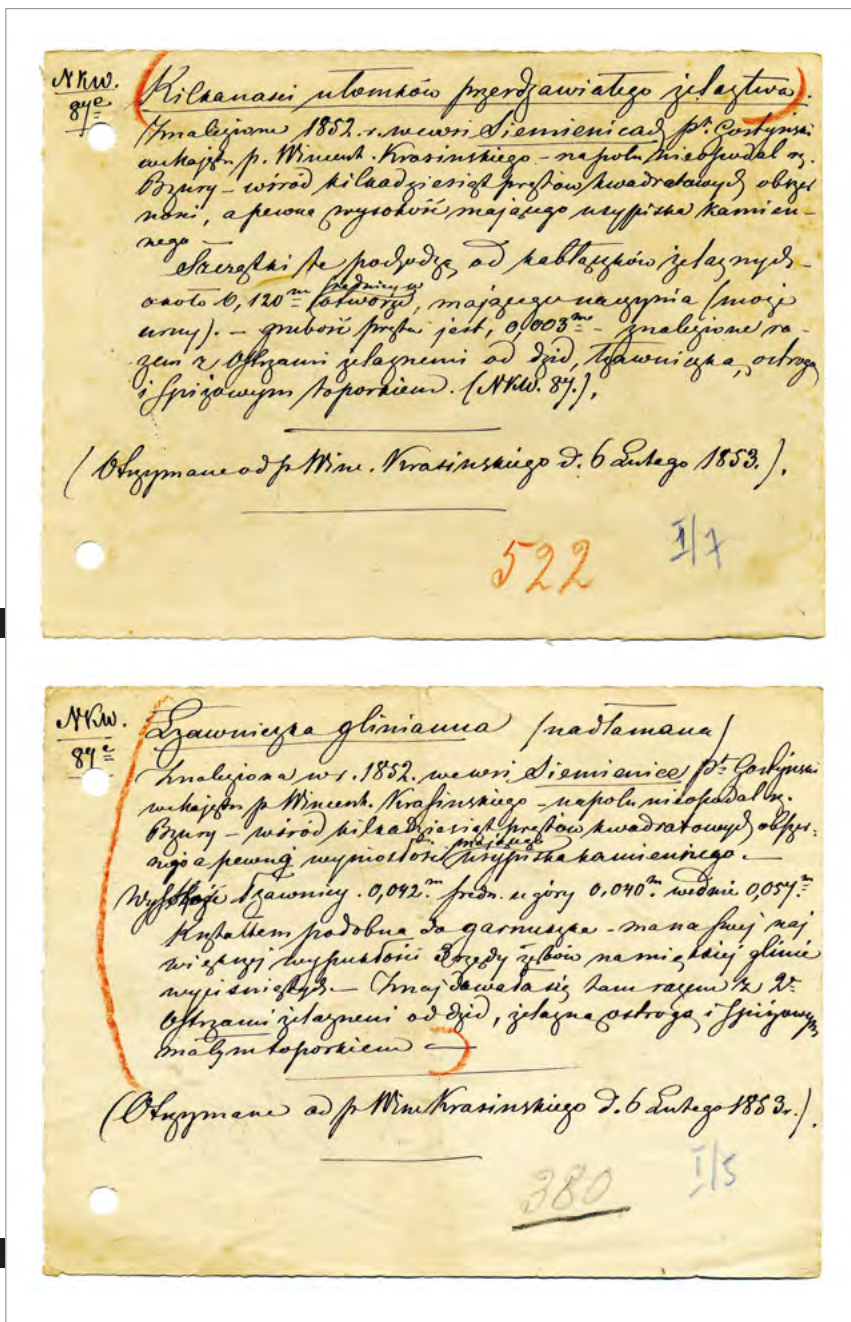 NKW.
87e
(Kilkanaści ułomków przerdzawiałego żelaztwa).
Znalezione 1852. r. we wsi Siemienicach pt. Gostyński
w majętn p. Wincent. Krasińskiego – na polu nieopodal rz.
Bzury – wśród kilkadziesiąt prętów kwadratowych obszer
ności, a pewną wysokość mającego usypiska kamien-
nego –
Szczątki te pochodzą od kabłączków żelaznych –
około 0,120m średnicy w otworze, mającego naczynia (może
urny). – grubość pręta jest, 0,003m – znalezione ra-
zem z Ostrzami żelaznemi od dzid, łzawniczka, ostrogą
i spiżowym toporkiem. (NKW. 87.).
(Otrzymane od p Winc. Krasinskiego d. 6 Lutego 1853.).
522 I/7
NKW.
87e
Łzawniczka glinianna (nadłamana)
Znaleziona w r. 1852. we wsi Siemienice pt. Gostyński
w majętn p Wincent. Krasinskiego – na polu nieopodal rz.
Bzury – wśród kilkadziesiąt prętów kwadratowych obszer-
nego a pewną wyniosłość mającego usypiska kamiennego. –
Wysokość łzawnicy. 0,042.m średn. u góry 0,040.m we dnie 0,057.m
Kształtem podobna do garnuszka – ma na swej naj
większej wypukłości 3 rzędy ząbków na miękkiej glinie
wyciśniętych. – Znajdowała się tam razem z 2a
Ostrzami żelaznemi od dzid, żelazną ostrogą i spiżowym
małym toporkiem –
(Otrzymane od p Winc Krasinskiego d. 6 Lutego 1853 r.).
380 I/5